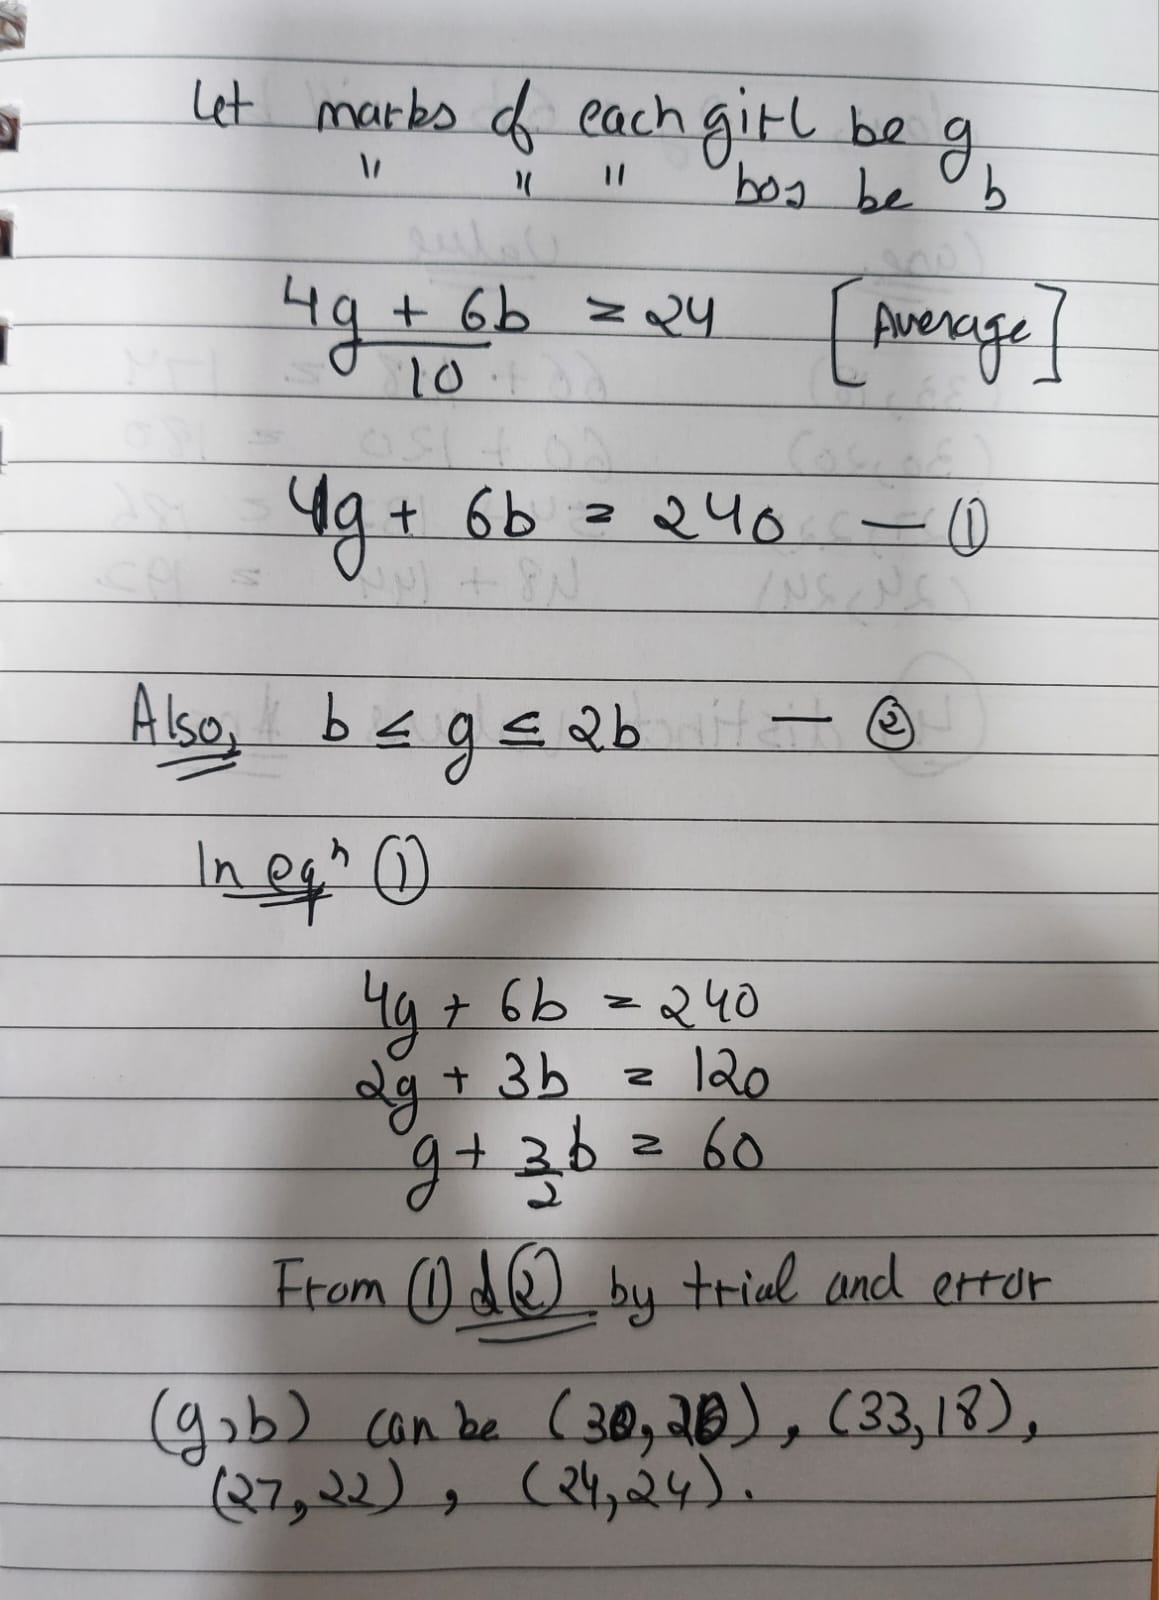 Let marks of each girl be g
" " " boy be b
4g + 6b = 24 [Average]
10
4g + 6b = 240 — ①
Also, b ≤ g ≤ 2b — ②
In eqⁿ ①
4g + 6b = 240
2g + 3b = 120
g + 3/2 b = 60
From ① & ② by trial and error
(g,b) can be (30,20), (33,18),
(27,22), (24,24).